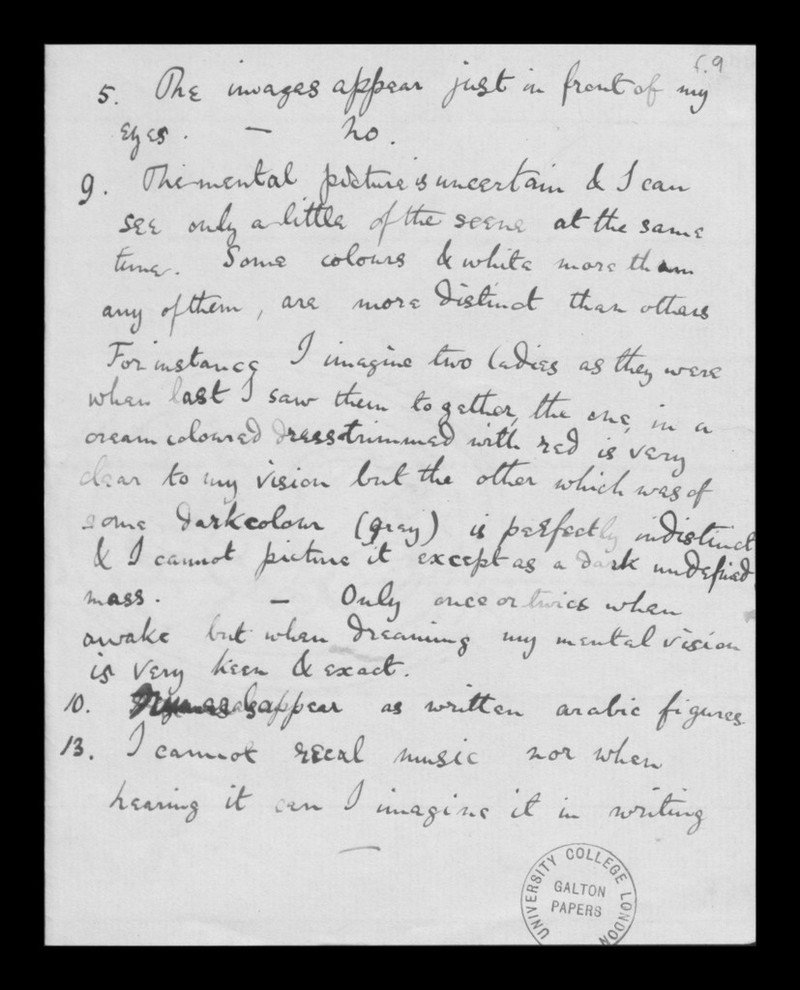 6.9
5. The images appear just in front of my
eyes. — No.
9. The mental picture is uncertain & I can
see only a little of the scene at the same
time. Some colours & white more than
any of them, are more distinct than others
For instance I imagine two ladies as they were
when last I saw them together, the one, in a
cream coloured dress trimmed with red is very
clear to my vision but the other which was of
some dark colour (grey) is perfectly indistinct
& I cannot picture it except as a dark undefined
mass. — Only once or twice when
awake but when dreaming my mental vision
is very keen & exact.
10. Numerals appear as written arabic figures
13. I cannot recal music nor when
hearing it can I imagine it in writing
UNIVERSITY COLLEGE LONDON
GALTON
PAPERS